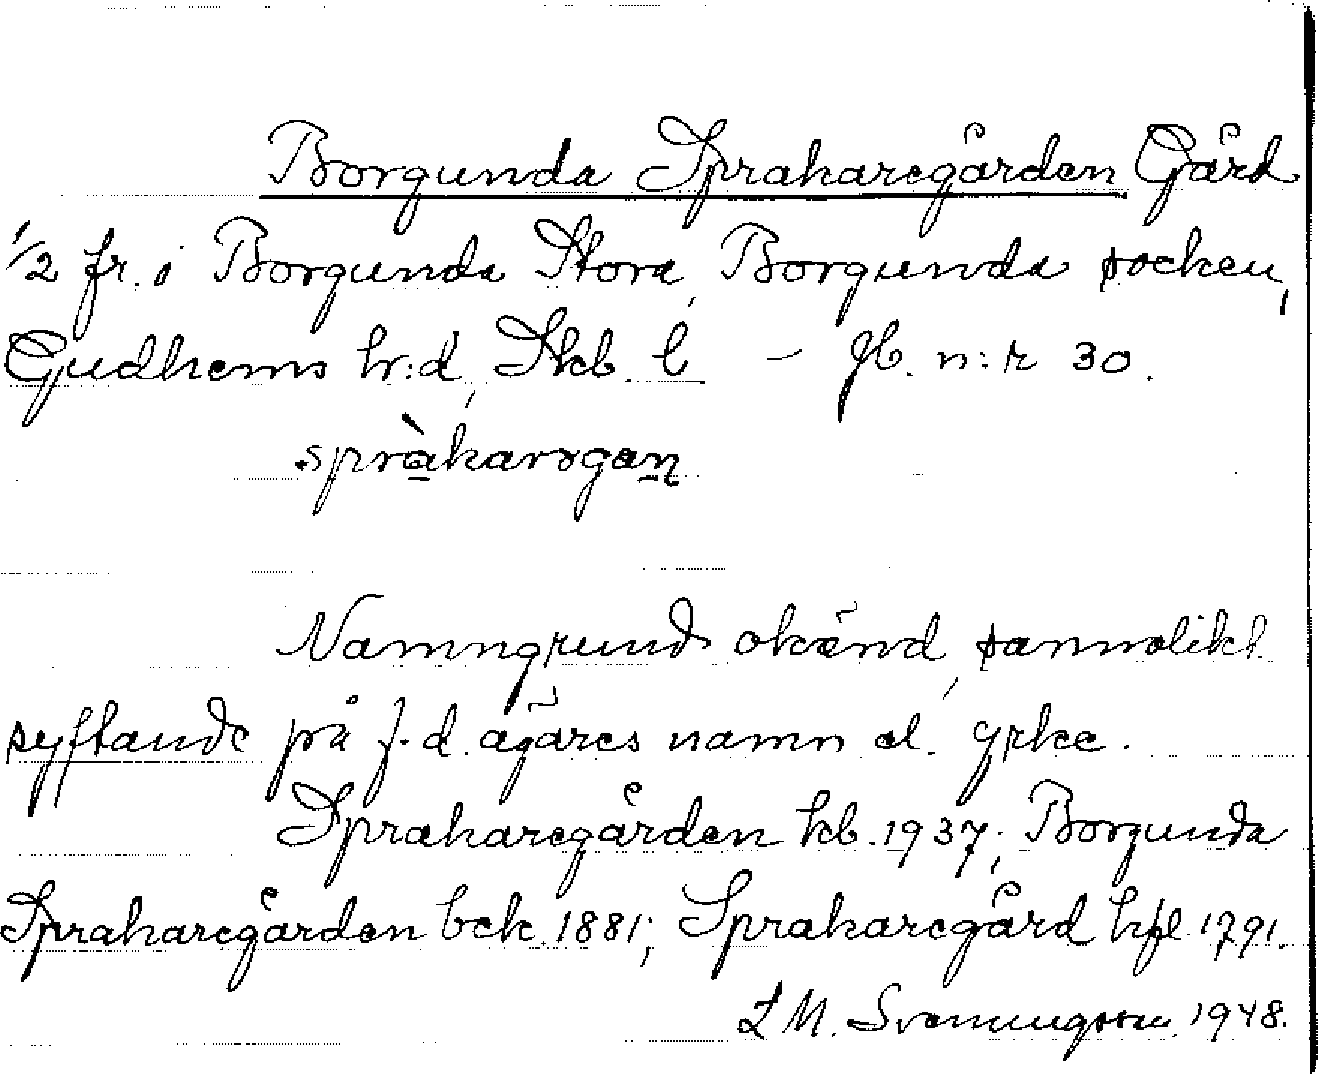 Borgunda Sprakaregården Gård
1/2 fr. i Borgunda Stora, Borgunda socken,
Gudhems hr:d, Skb. l. – Jb. n:r 30.
spràkarɤgaṉ
Namngrund okänd, sannolikt
syftande på f.d. ägares namn el. yrke.
Sprakaregården kb. 1937; Borgunda
Sprakaregården bek 1881; Sprakaregård hfl 1791.
L M. Svenungsson 1948.